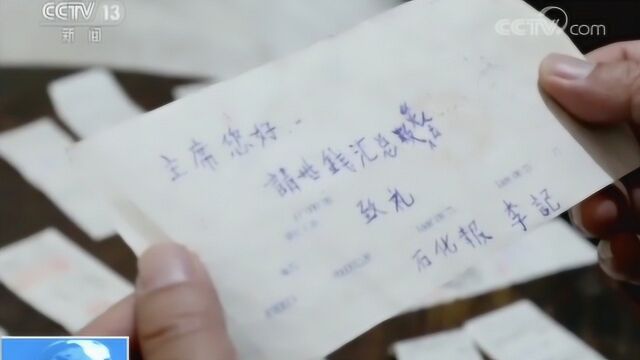 CCTV 13
新闻
CCTV.com
主席您好..
請世錢汇总
致礼
石化報 李記